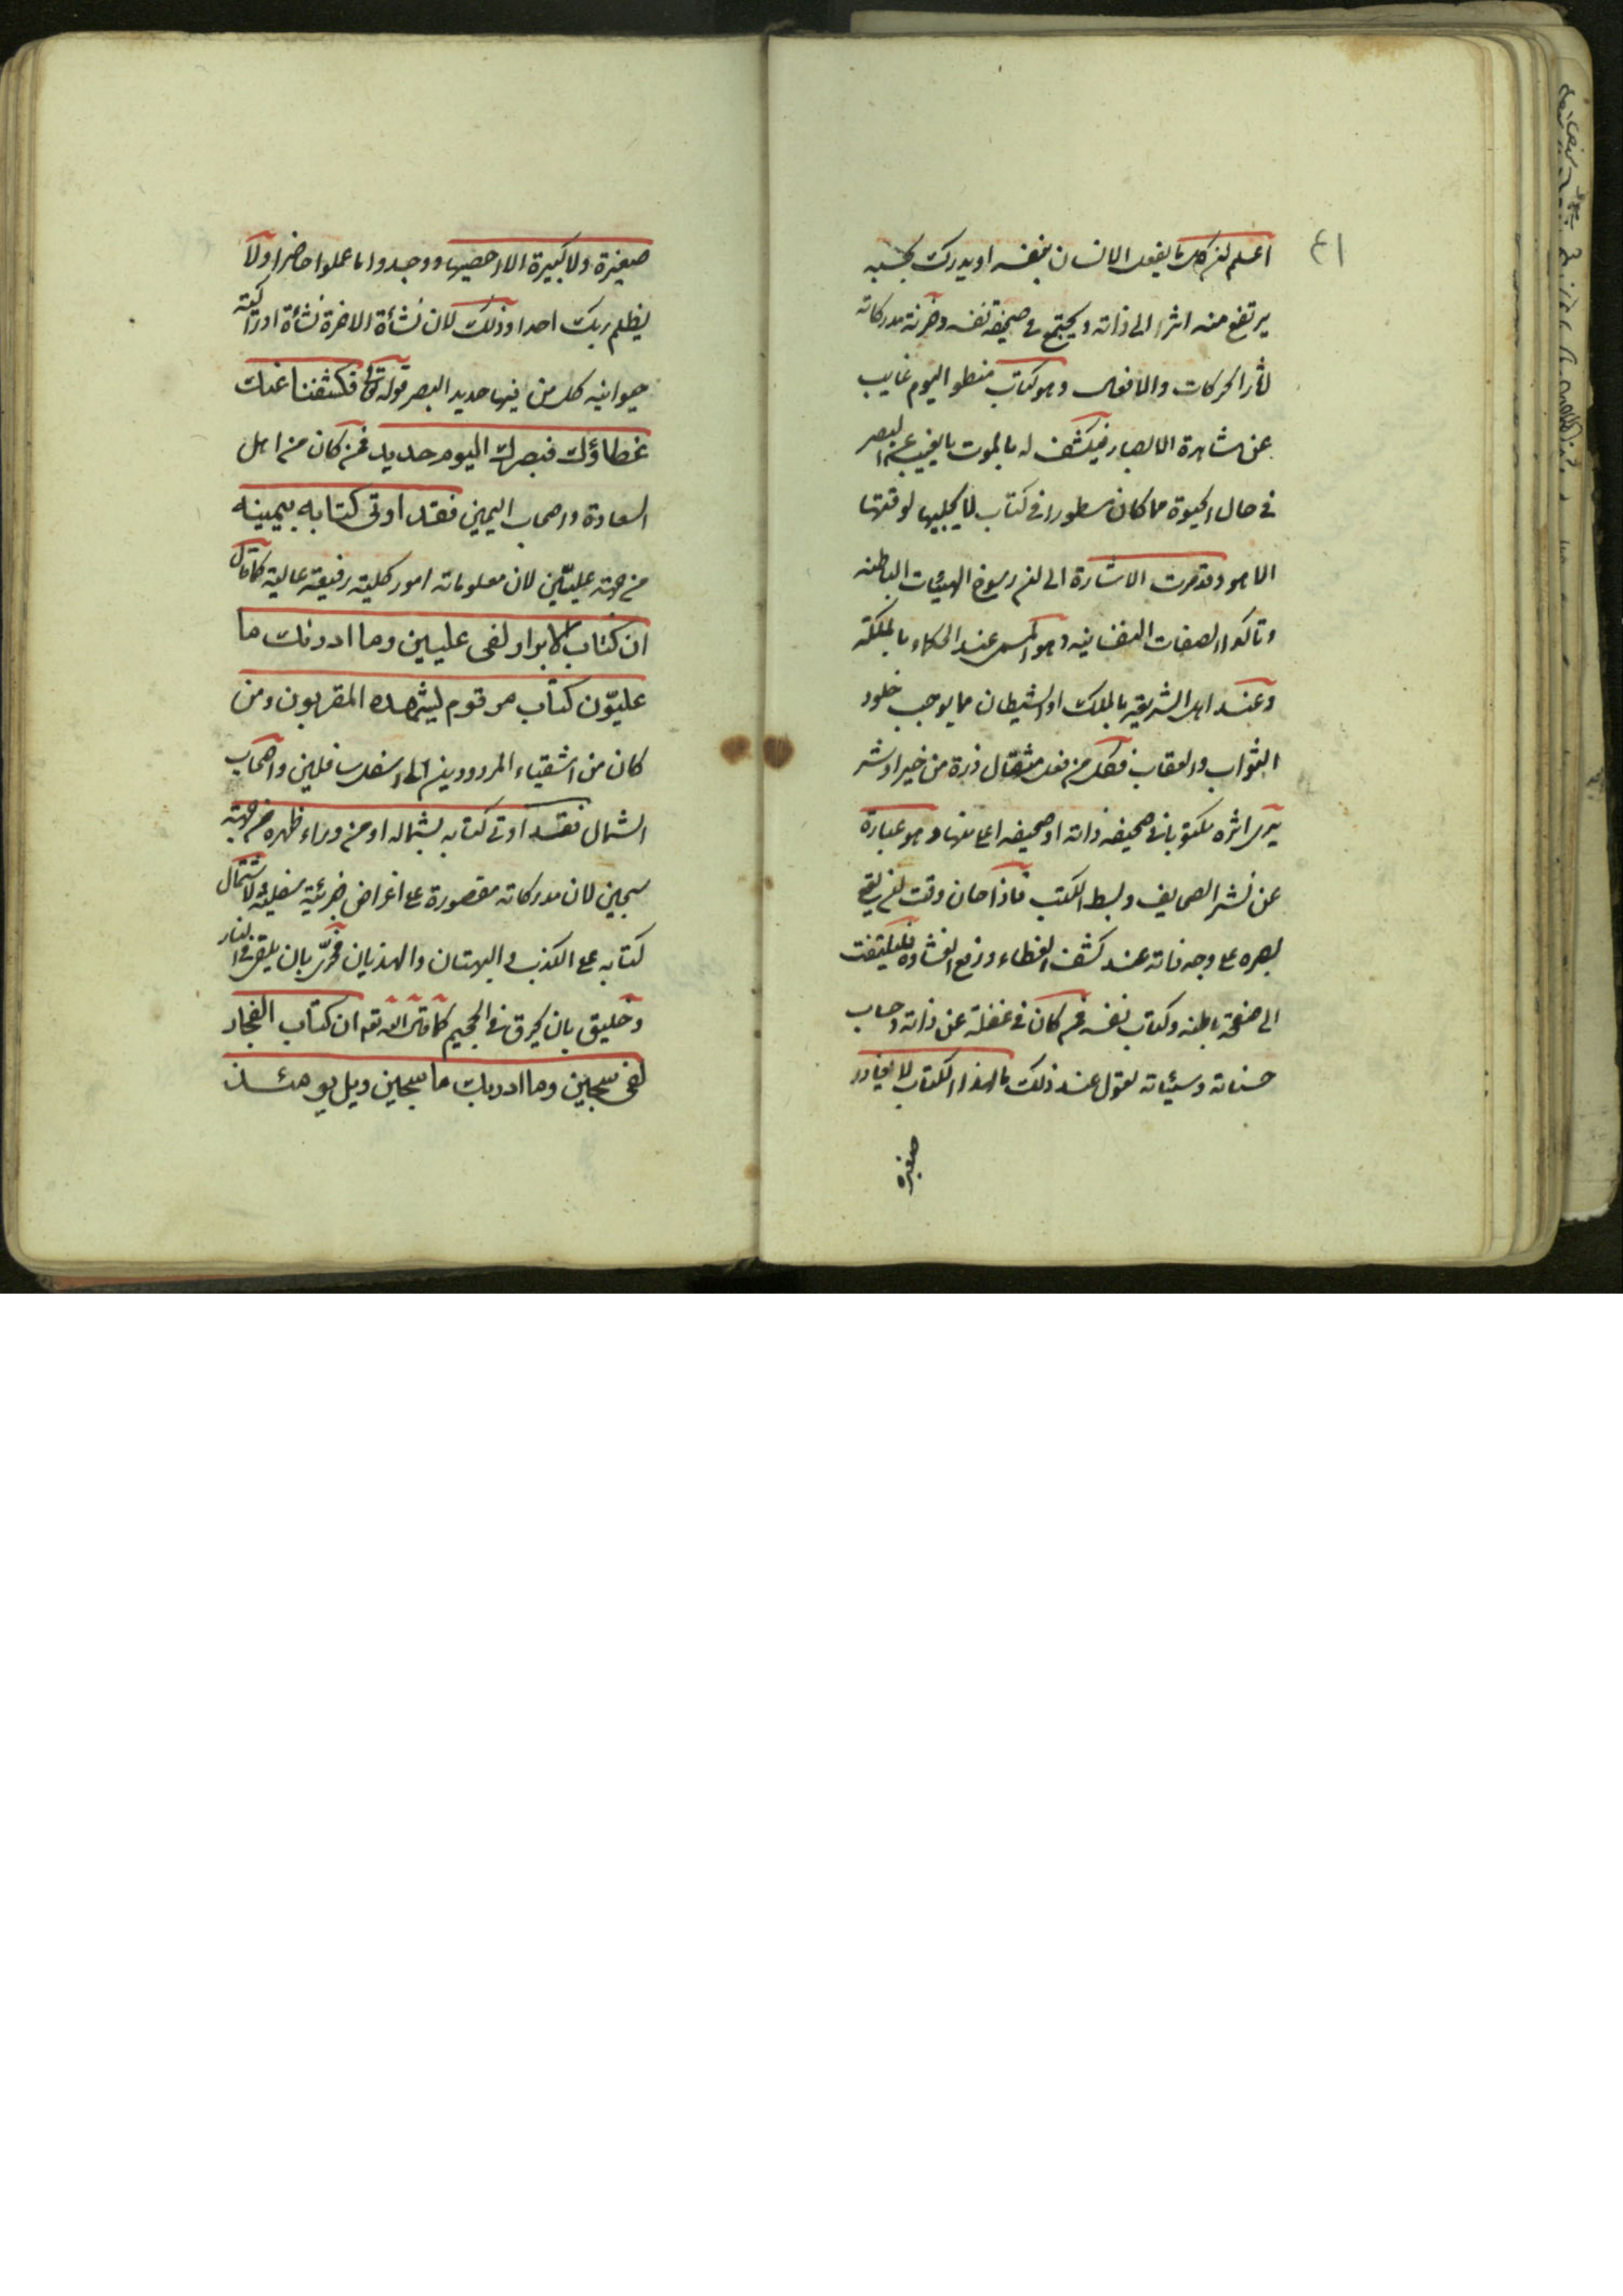 ٤١
اعلم ان كل ما يفعل الانسان بنفسه او يدرك بحسه
يرتفع منه اثر الى ذاته ويجتمع فى صحيفة نفسه وخزنة مدركاته
اثار الحركات والافعال وهو كتاب منطو اليوم غايب
عن مشاهدة الابصار فيكشف له بالموت ما يغيب عن البصر
فى حال الحيوة مما كان مسطورا فى كتاب لا يجليها لوقتها
الا هو وقد مرت الاشارة الى ان رسوخ الهيئات الباطنه
وتاكد الصفات النفسانيه وهو المسمى عند الحكماء بالملكة
وعند اهل الشريعة بالملك او الشيطان مما يوجب خلود
الثواب والعقاب فكل من فعل مثقال ذرة من خير او شر
يرى اثره مكتوبا فى صحيفه ذاته او صحيفه اعلا منها وهو عبارة
عن نشر الصحايف وبسط الكتب فاذا حان وقت ان يقع
بصره على وجه ذاته عند كشف الغطاء ورفع الغشاوة فليلتفت
الى صفحة باطنه وكتاب نفسه فمن كان فى غفلة عن ذاته وحساب
حسناته وسيئاته يقول عند ذلك ما لهذا الكتاب لا يغادر
صغيره
صغيرة ولا كبيرة الا احصيها ووجدوا ما عملوا حاضرا ولا
يظلم ربك احدا وذلك لان نشأة الاخرة نشأة ادراكية
حيوانيه كل من فيها حديد البصر قوله تعالى فكشفنا عنك
غطاؤك فبصرك اليوم حديد فمن كان من اهل
السعادة واصحاب اليمين فقد اوتى كتابه بيمينه
من جهة عليّين لان معلوماته امور كلية رفيعة عالية كما قال
ان كتاب الابرار لفى عليين وما ادرىك ما
عليّون كتاب مرقوم يشهده المقربون ومن
كان من اشقياء المردودين الى اسفل سافلين واصحاب
الشمال فقد اوتى كتابه بشماله او من وراء ظهره من جهة
سجين لان مدركاته مقصورة على اغراض جزئية سفلية ولاشتمال
كتابه على الكذب والبهتان والهذيان فحرىّ بان يلقى فى النار
وخليق بان يحرق فى الجحيم كما قال الله تعم ان كتاب الفجار
لفى سجين وما ادريك ما سجين ويل يومئذ